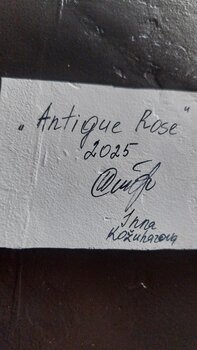 „Antique Rose"
2025
Inna
Kozuharova